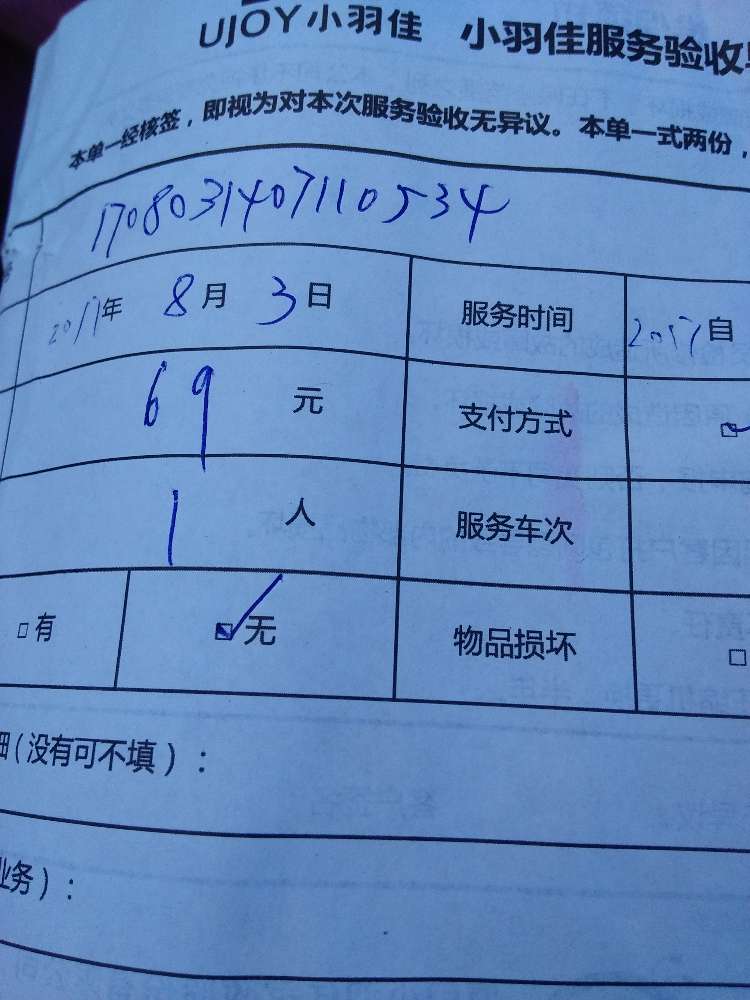 UJOY小羽佳 小羽佳服务验收单
本单一经核签，即视为对本次服务验收无异议。本单一式两份，
1708031407110534
2017年 8月 3日 服务时间 自
69 元 支付方式
1 人 服务车次
□有 ☑无 物品损坏 □
细（没有可不填）：
业务）：